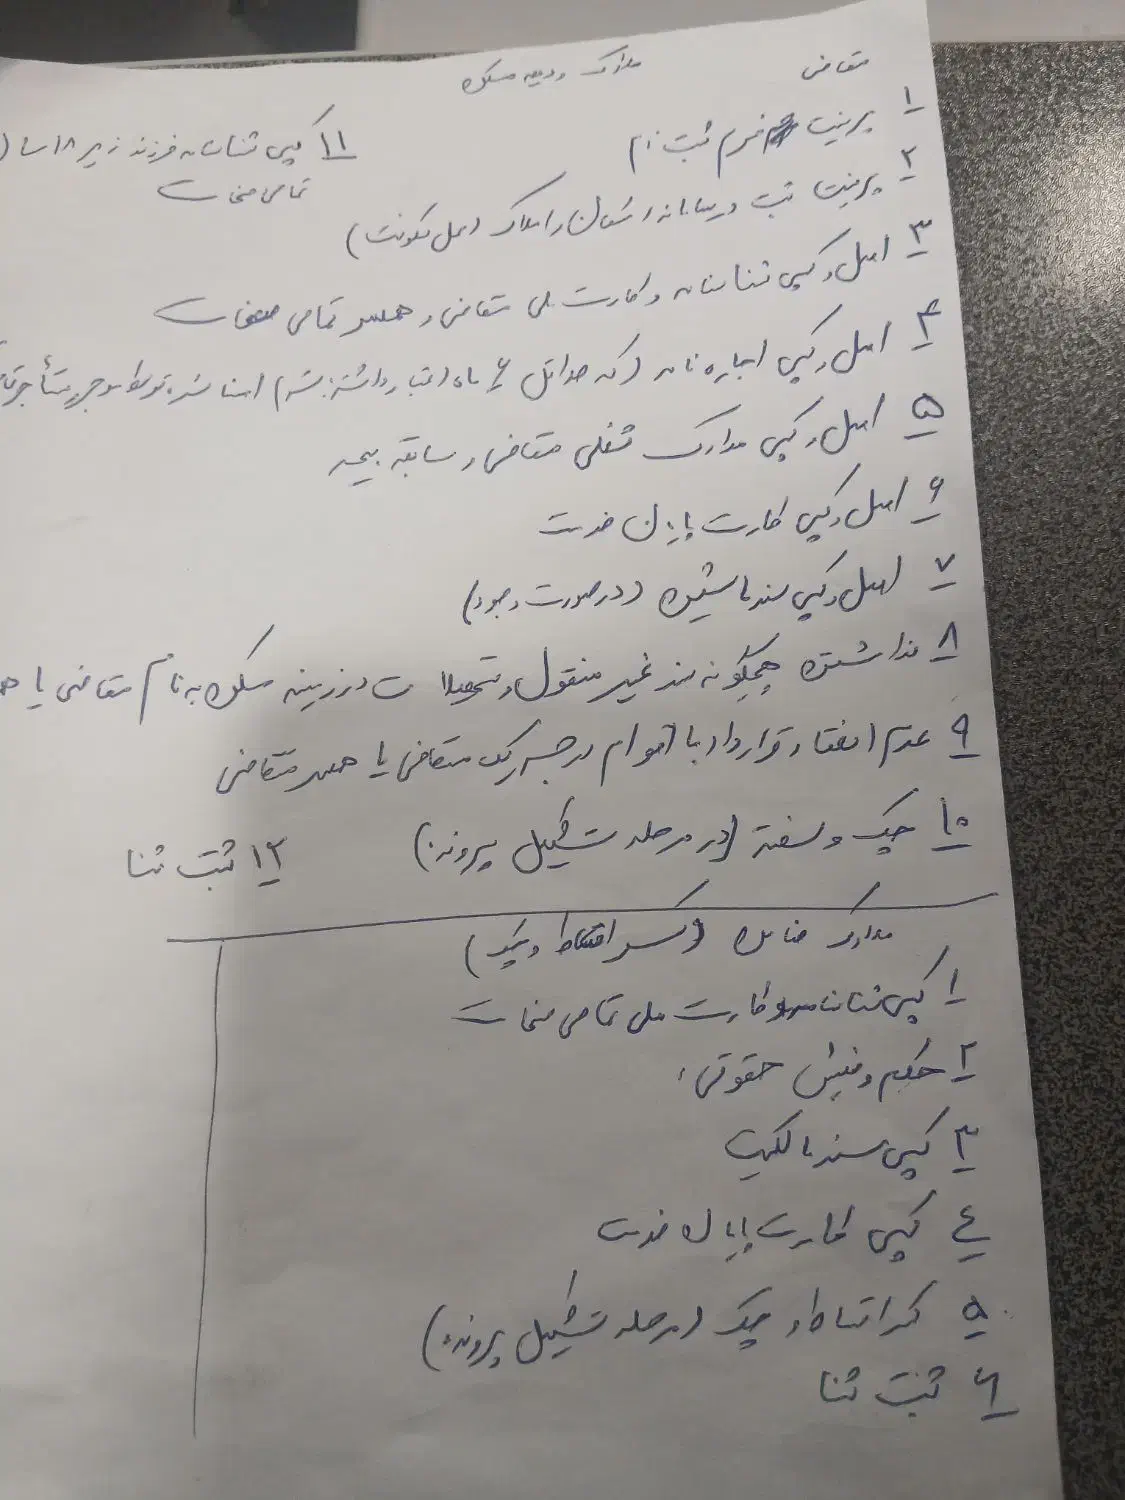 متقاضی
مدارک ودیعه مسکن
۱ پرینت فرم ثبت نام
۲ پرینت ثبت در سامانه اسکان و املاک (محل سکونت)
۳ اصل و کپی شناسنامه و کارت ملی متقاضی و همسر تمامی صفحات
۴ اصل و کپی اجاره نامه (که حداقل ۶ ماه اعتبار داشته باشد) امضا شده توسط موجر و مستأجر
۵ اصل و کپی مدارک شغلی متقاضی و سابقه بیمه
۶ اصل و کپی کارت پایان خدمت
۷ اصل و کپی سند ماشین (درصورت وجود)
۸ نداشتن هیچگونه سند غیر منقول و تسهیلات در زمینه مسکن به نام متقاضی یا
۹ عدم انعقاد قرارداد با اقوام درجه یک متقاضی یا همسر متقاضی
۱۰ چک و سفته (در مرحله تشکیل پرونده)
۱۱ کپی شناسنامه فرزند زیر ۱۸ سال (
تمامی صفحات
۱۲ ثبت ثنا
مدارک ضامن (کسر اقساط و چک)
۱ کپی شناسنامه و کارت ملی تمامی صفحات
۲ حکم و فیش حقوقی
۳ کپی سند مالکیت
٤ کپی کارت پایان خدمت
۵ کسر اقساط و چک (مرحله تشکیل پرونده)
۶ ثبت ثنا